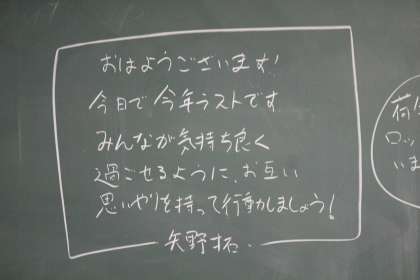 おはようございます!
今日で今年ラストです
みんなが気持ち良く
過ごせるように、お互い
思いやりを持って行動しましょう!
矢野拓
荷
ロッ
いま